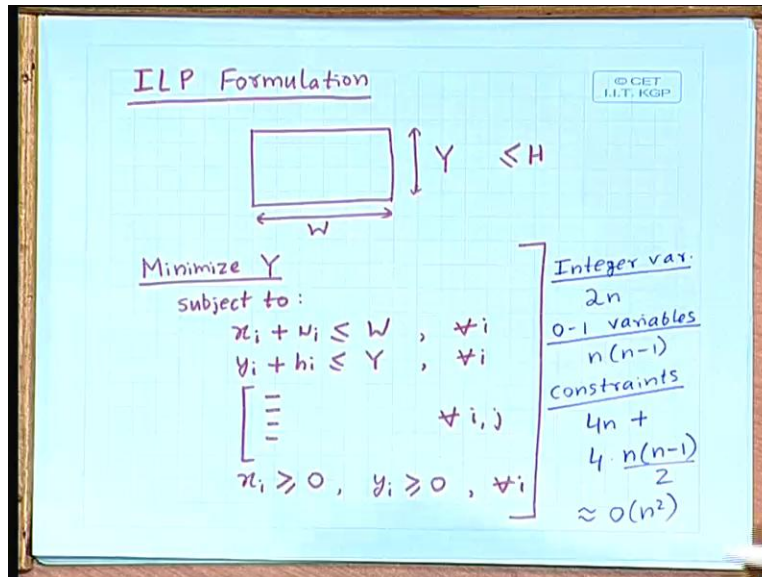 ILP Formulation
© CET
I.I.T. KGP
Y ≤ H
W
Minimize Y
subject to :
xi + wi ≤ W , ∀i
yi + hi ≤ Y , ∀i
∀ i, j
xi ≥ 0, yi ≥ 0 , ∀i
Integer var.
2n
0-1 variables
n(n-1)
constraints
4n +
4 · n(n-1)
2
≈ O(n²)